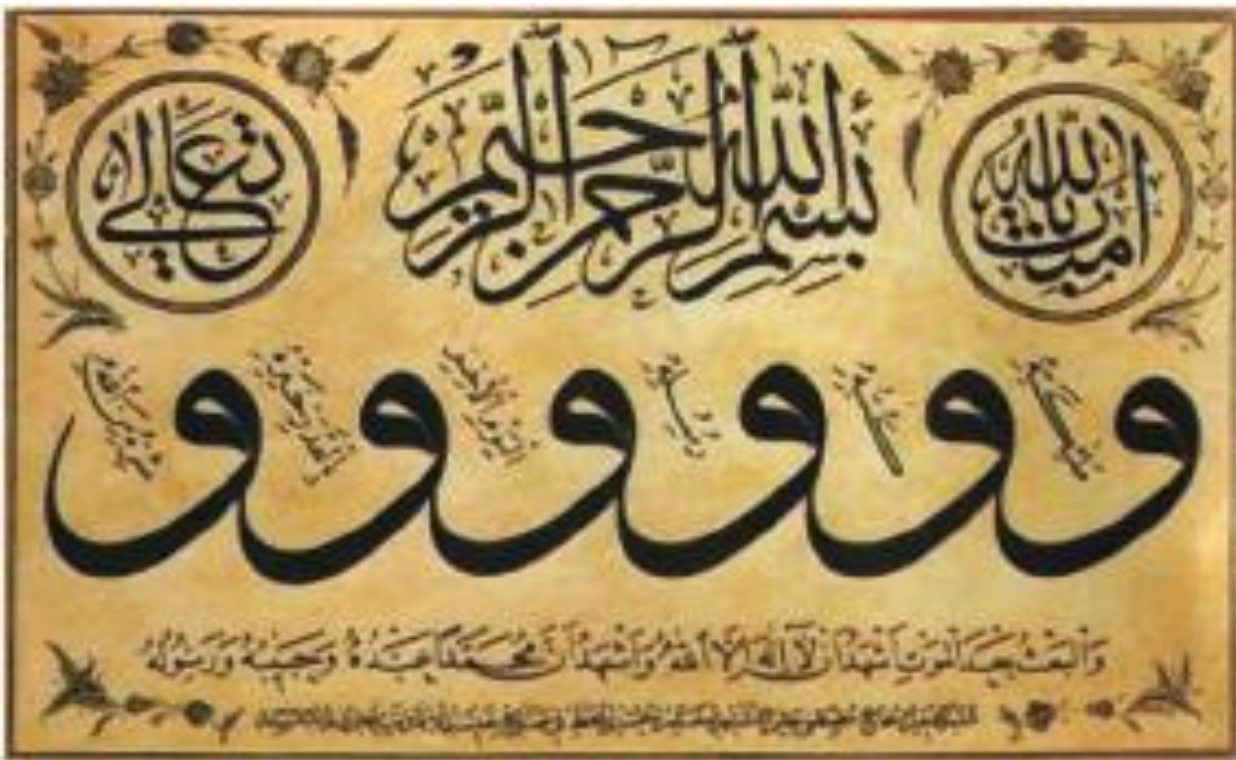 بسم الله الرحمن الرحيم
آمنت بالله
تعالى
و ملائكته و كتبه و رسله و اليوم الآخر و القدر خيره و شره من الله
والبعث بعد الموت أشهد أن لا إله إلا الله وأشهد أن محمدا عبده وحبيبه ورسوله